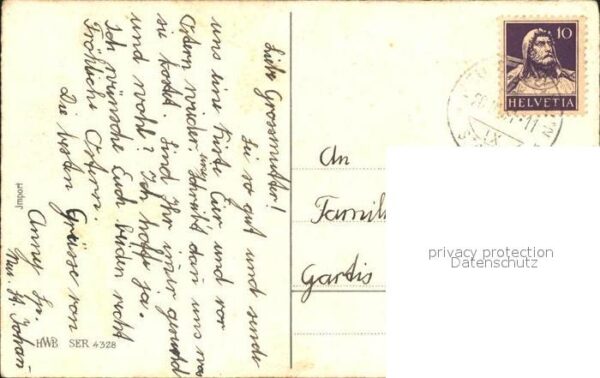 Liebe Grossmutter!
Sei so gut und sende
uns eine Kiste Eier und vor
Ostern wieder eine
uns
schreibt dan uns was
sie kostet. Sind Ihr immer gesund
und wohl? Ich hoffe ja.
Ich wünsche Euch beiden recht
Fröhliche Ostern.
Die besten Grüsse von
Anny Sp.
Neu St. Johan
Import
HWB SER 4328
10
HELVETIA
IX
An
Famil
Gartis
privacy protection
Datenschutz